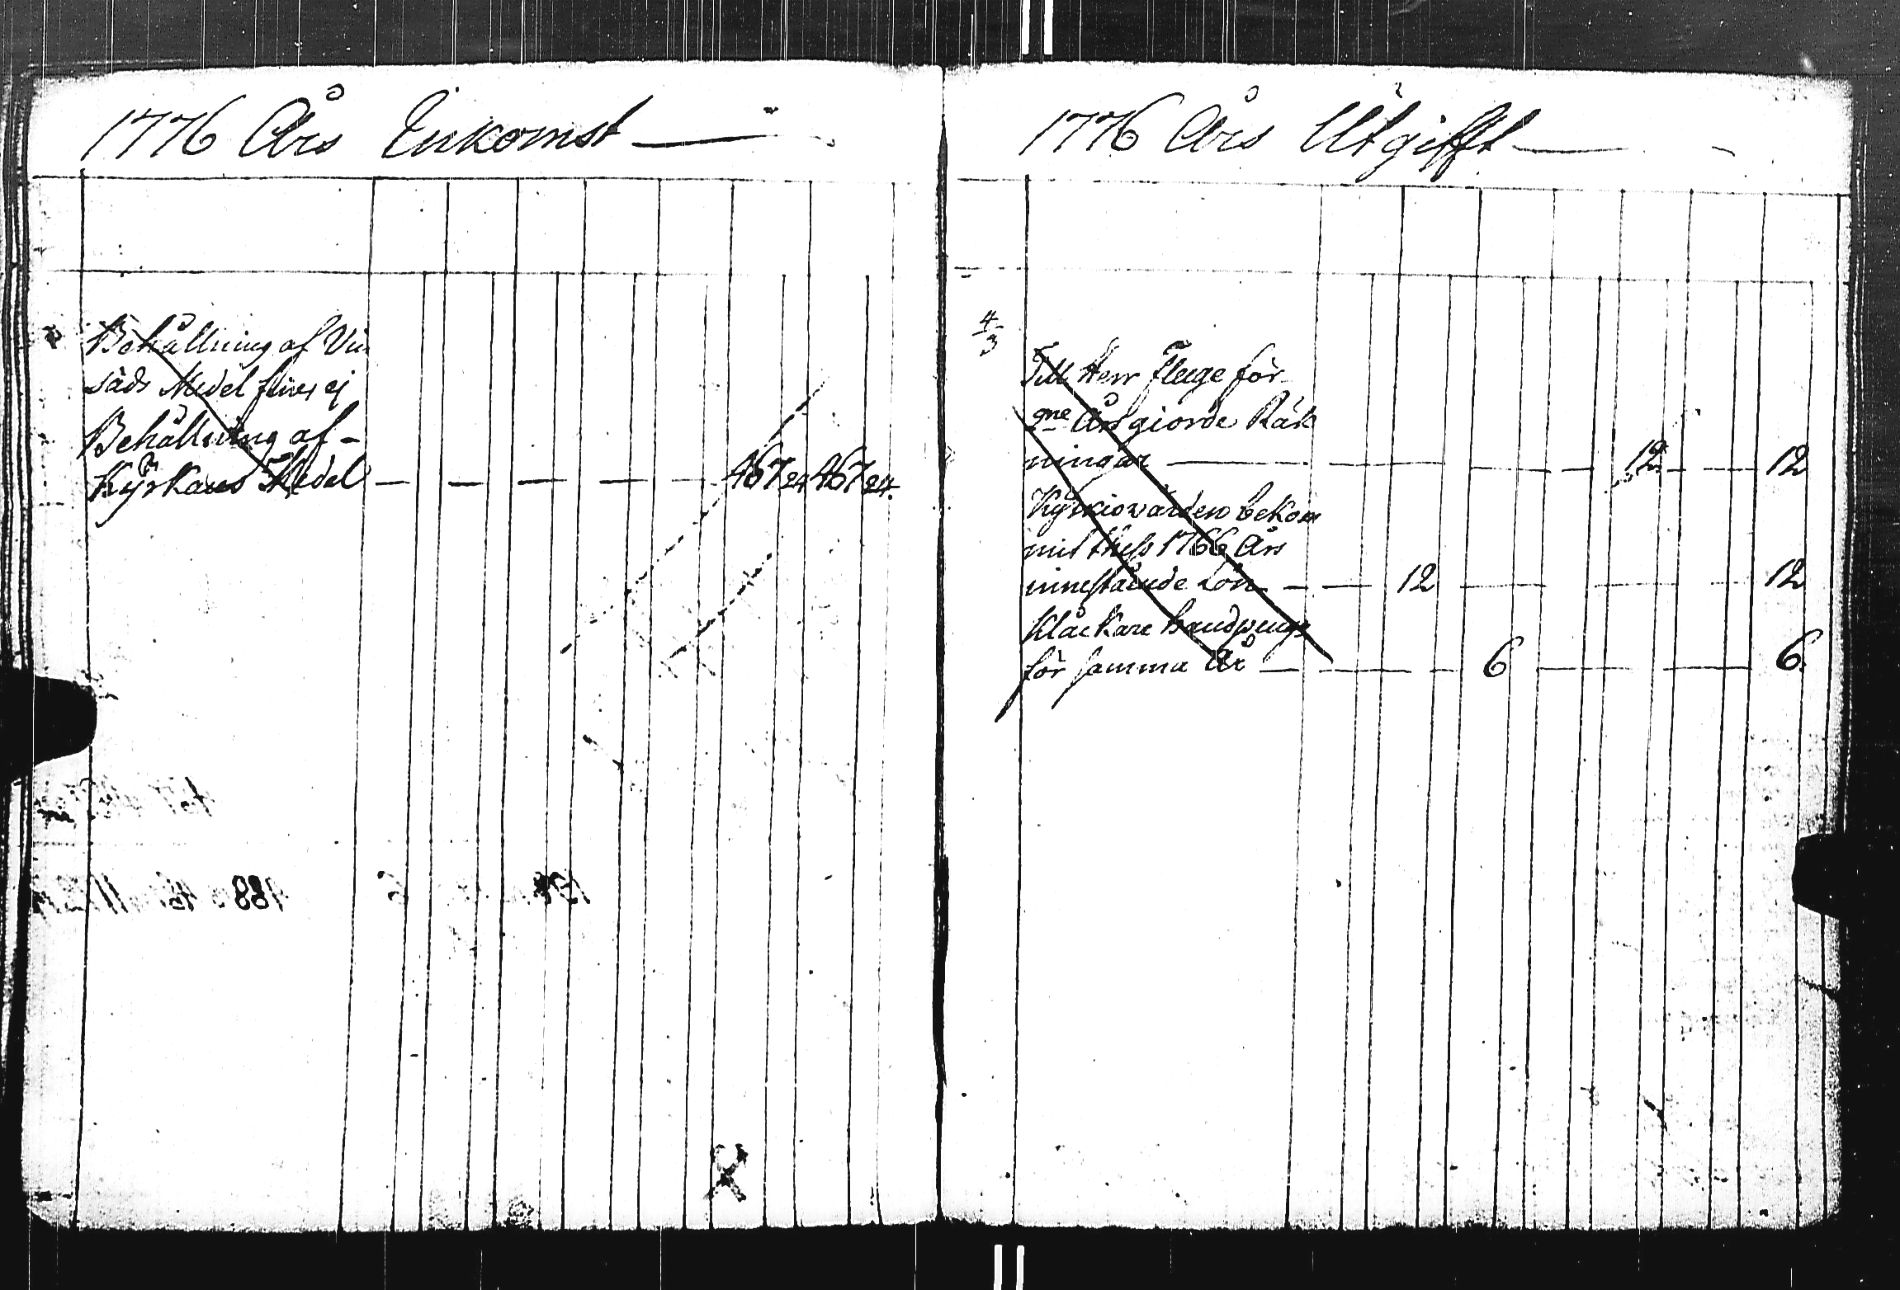 1776 Års Inkomst
Behållning af Vin
säds Medel finnes ej
Behållning af -
Kyrkans Medel — — — — — 467 24 467 24.
1776 Års Utgifft
4/3
Till Herr Fluge för
gne Års giorde Räk
ningar — — — 12 — 12
Kyrkiowärden bekom
mit thess 1766 Års
innestående Lön — — 12 — — — 12
Klåckare handpengar
för samma År — — — 6 — — — 6.